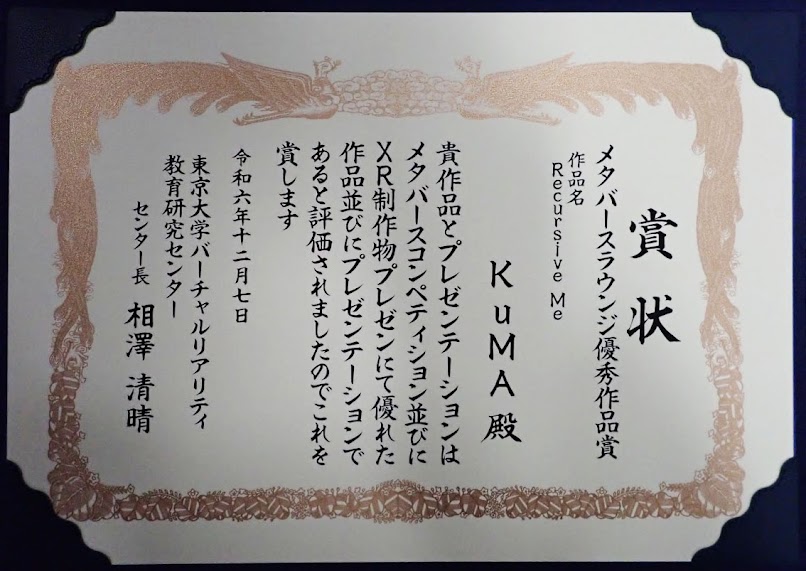 賞状
メタバースラウンジ優秀作品賞
作品名
Recursive Me
KuMA 殿
貴作品とプレゼンテーションは
メタバースコンペティション並びに
XR制作物プレゼンにて優れた
作品並びにプレゼンテーションで
あると評価されましたのでこれを
賞します
令和六年十二月七日
東京大学バーチャルリアリティ
教育研究センター
センター長 相澤 清晴